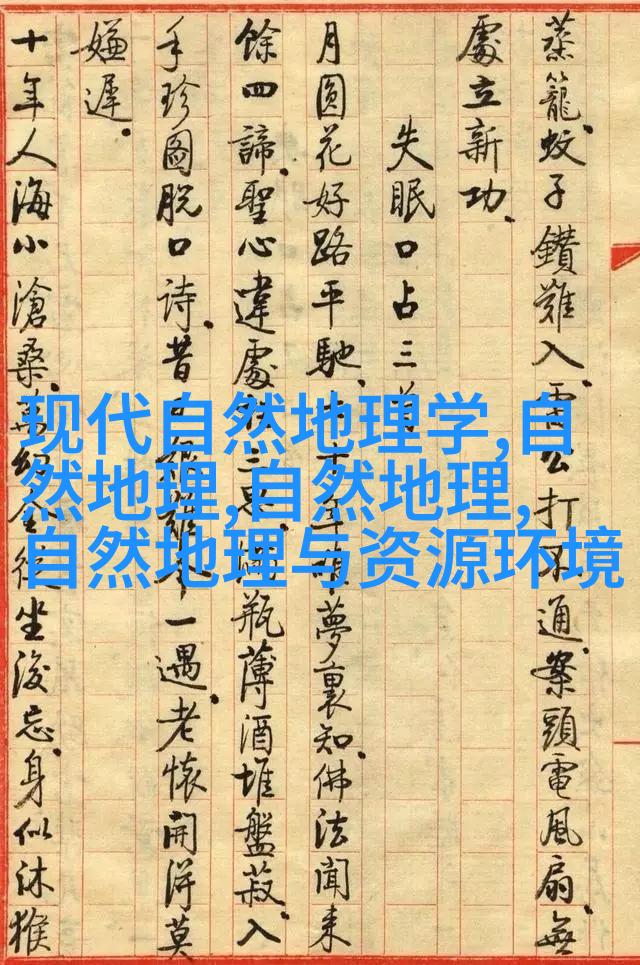 蒸籠蚊子鑽難入雷公打不通案頭電風扇無
處立新功
失眠口占三首
月圓花好路平馳夢裏知佛法聞来
餘四諦聖心違處瓶薄酒堆盤菽入
手珍圖脱口诗昔一遇老懷開得莫
嫌遲
十年人海小滄桑萬幻坐後忘身似沐猴
现代自然地理学,自
然地理,自然地理,
自然地理与资源环境